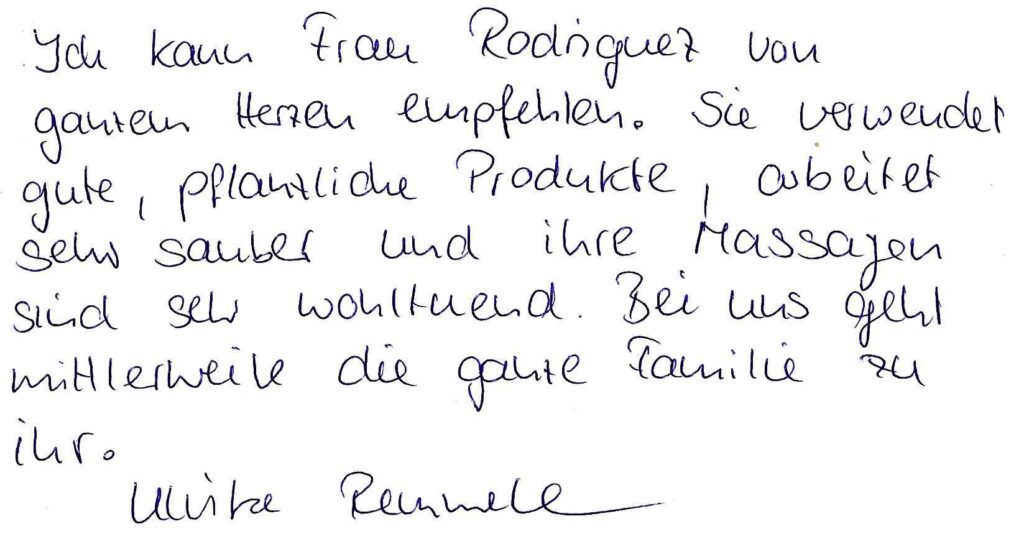 Ich kann Frau Rodriguez von
ganzem Herzen empfehlen. Sie verwendet
gute, pflanzliche Produkte, arbeitet
sehr sauber und ihre Massagen
sind sehr wohltuend. Bei uns geht
mittlerweile die ganze Familie zu
ihr.
Ulrike Remmele